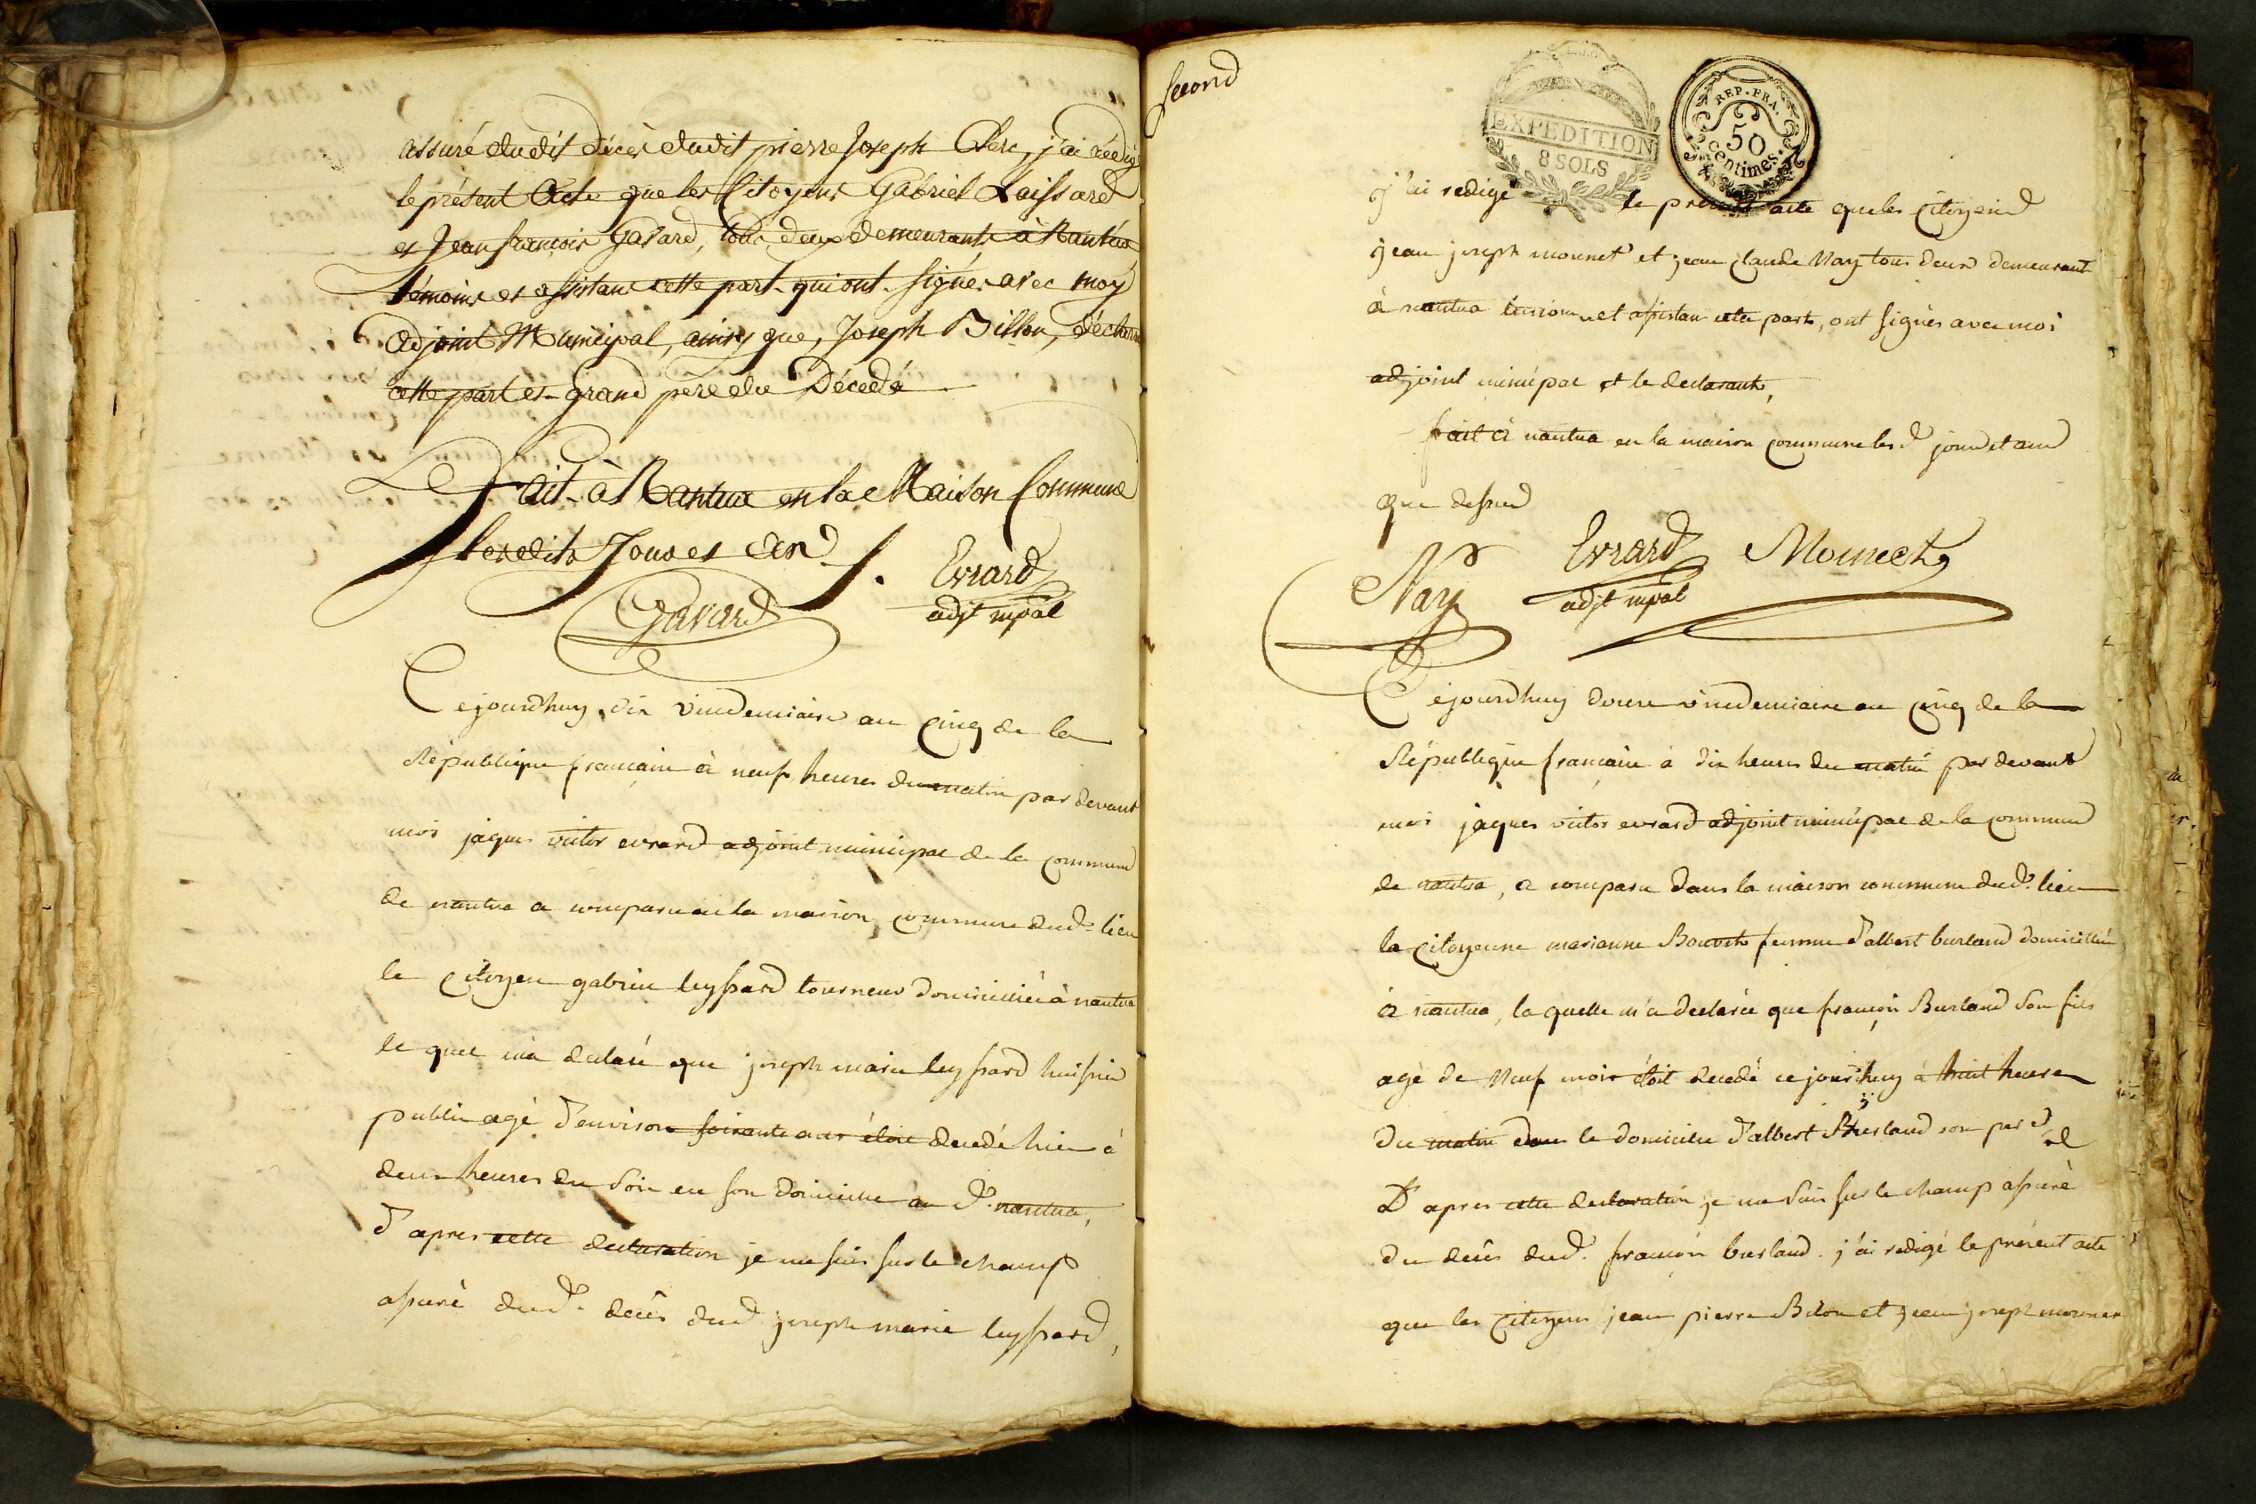 assuré dudit décès dudit pierre Joseph Clerc, j'ai rédigé
le présent Acte que les Citoyens Gabriel Laissard
et Jean françois Gavard, tous deux demeurants à Nantua
témoins et assistans cette part qui ont signés avec moy
adjoint Municipal, ainsy que, Joseph Billon,
cette part et grand père du Décédé
Fait à Nantua en la Maison Commune
lesedits Jour et an
Evrard
Gavard
adjt mpal
Cejourdhuy dix vindemiaire an Cinq de la
République francaise à neuf heures du matin par devant
moi jaques victor evrard adjoint municipal de la commune
de nantua a comparu en la maison commune dud. lieu
le Citoyen gabriel leyssard tourneur domicilié à nantua
le quel m'a declaré que joseph marie leyssard huissier
public agé d'environ soixante ans étoit decedé hier à
deux heures du soir en son domicille au d. nantua,
D'apres cette declaration je me suis sur le champ
assuré dud. decès dud joseph marie leyssard,
second
EXPEDITION
8 SOLS
REP. FRA.
50
centimes.
j'ai redigé le présent acte que les Citoyens
jean joseph mounet et jean claude Nay tous deux demeurant
à nantua temoins et assistan cette part, ont signés avec moi
adjoint municipal et le declarant,
fait à nantua en la maison commune lesd. jour et an
que dessus
Nay
Evrard
Mounet
adjt mpal
Cejourdhuy douze vindemiaire an Cinq de la
République francaise à dix heures du matin par devant
moi jaques victor evrard adjoint municipal de la commune
de nantua, a comparu dans la maison commune dud. lieu
la Citoyenne marianne Bouvet femme d'albert burland domicilliée
à nantua, la quelle m'a declarée que françois Burland son fils
agé de Neuf mois étoit decedé ce jourdhuy à huit heures
du matin dans le domicile d'albert Burland son per
D'apres cette declaration je me suis sur le champ assuré
du decès dud. françois burland. j'ai redigé le présent acte
que les Citoyens jean pierre Billon et jean joseph mounet